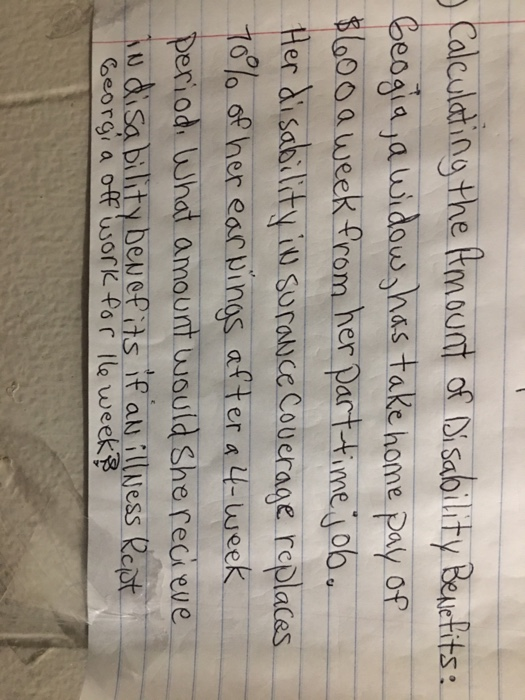 ) Calculating the Amount of Disability Benefits:
Geogia, a widow, has take home pay of
$600 a week from her part-time job.
Her disability insurance coverage replaces
70% of her earnings after a 4-week
period. What amount would she recieve
in disability benefits if an illness kept
Georgia off work for 16 weeks?